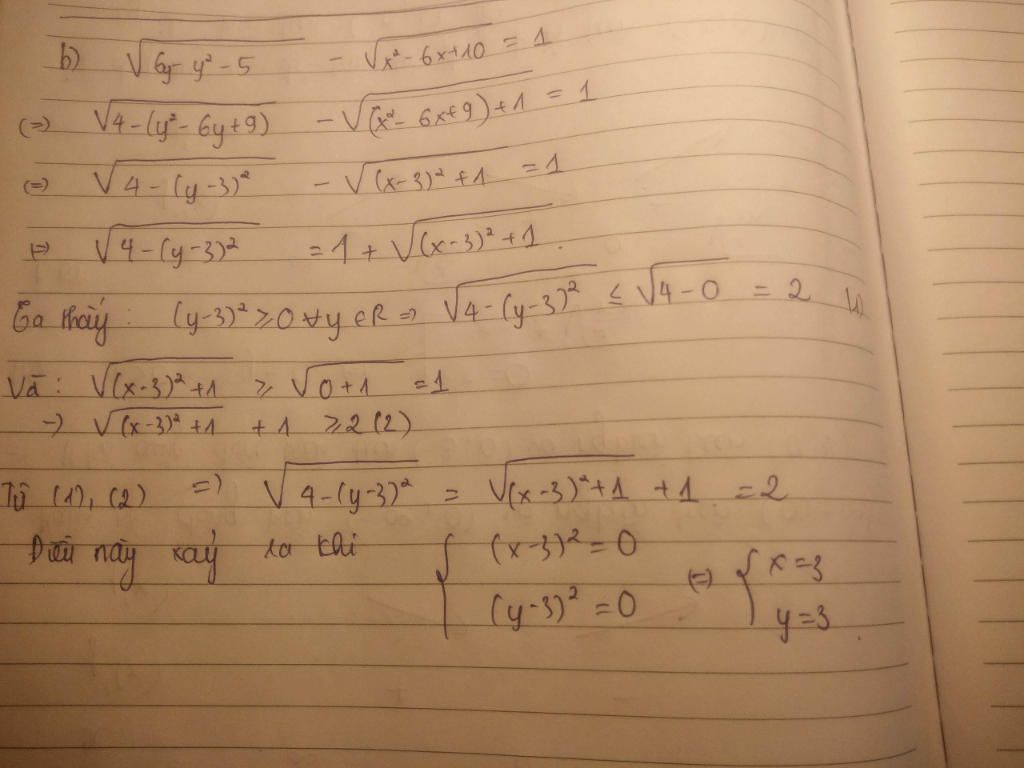 b) √(6y - y² - 5) - √(x² - 6x + 10) = 1
(=) √(4 - (y² - 6y + 9)) - √((x² - 6x + 9) + 1) = 1
(=) √(4 - (y - 3)²) - √((x - 3)² + 1) = 1
(=) √(4 - (y - 3)²) = 1 + √((x - 3)² + 1).
Ta thấy: (y - 3)² ≥ 0 ∀y ∈ R => √(4 - (y - 3)²) ≤ √(4 - 0) = 2 (1)
Và: √((x - 3)² + 1) ≥ √(0 + 1) = 1
-> √((x - 3)² + 1) + 1 ≥ 2 (2)
Từ (1), (2) => √(4 - (y - 3)²) = √((x - 3)² + 1) + 1 = 2
Điều này xảy ra khi { (x - 3)² = 0 (=) { x = 3
(y - 3)² = 0 y = 3.